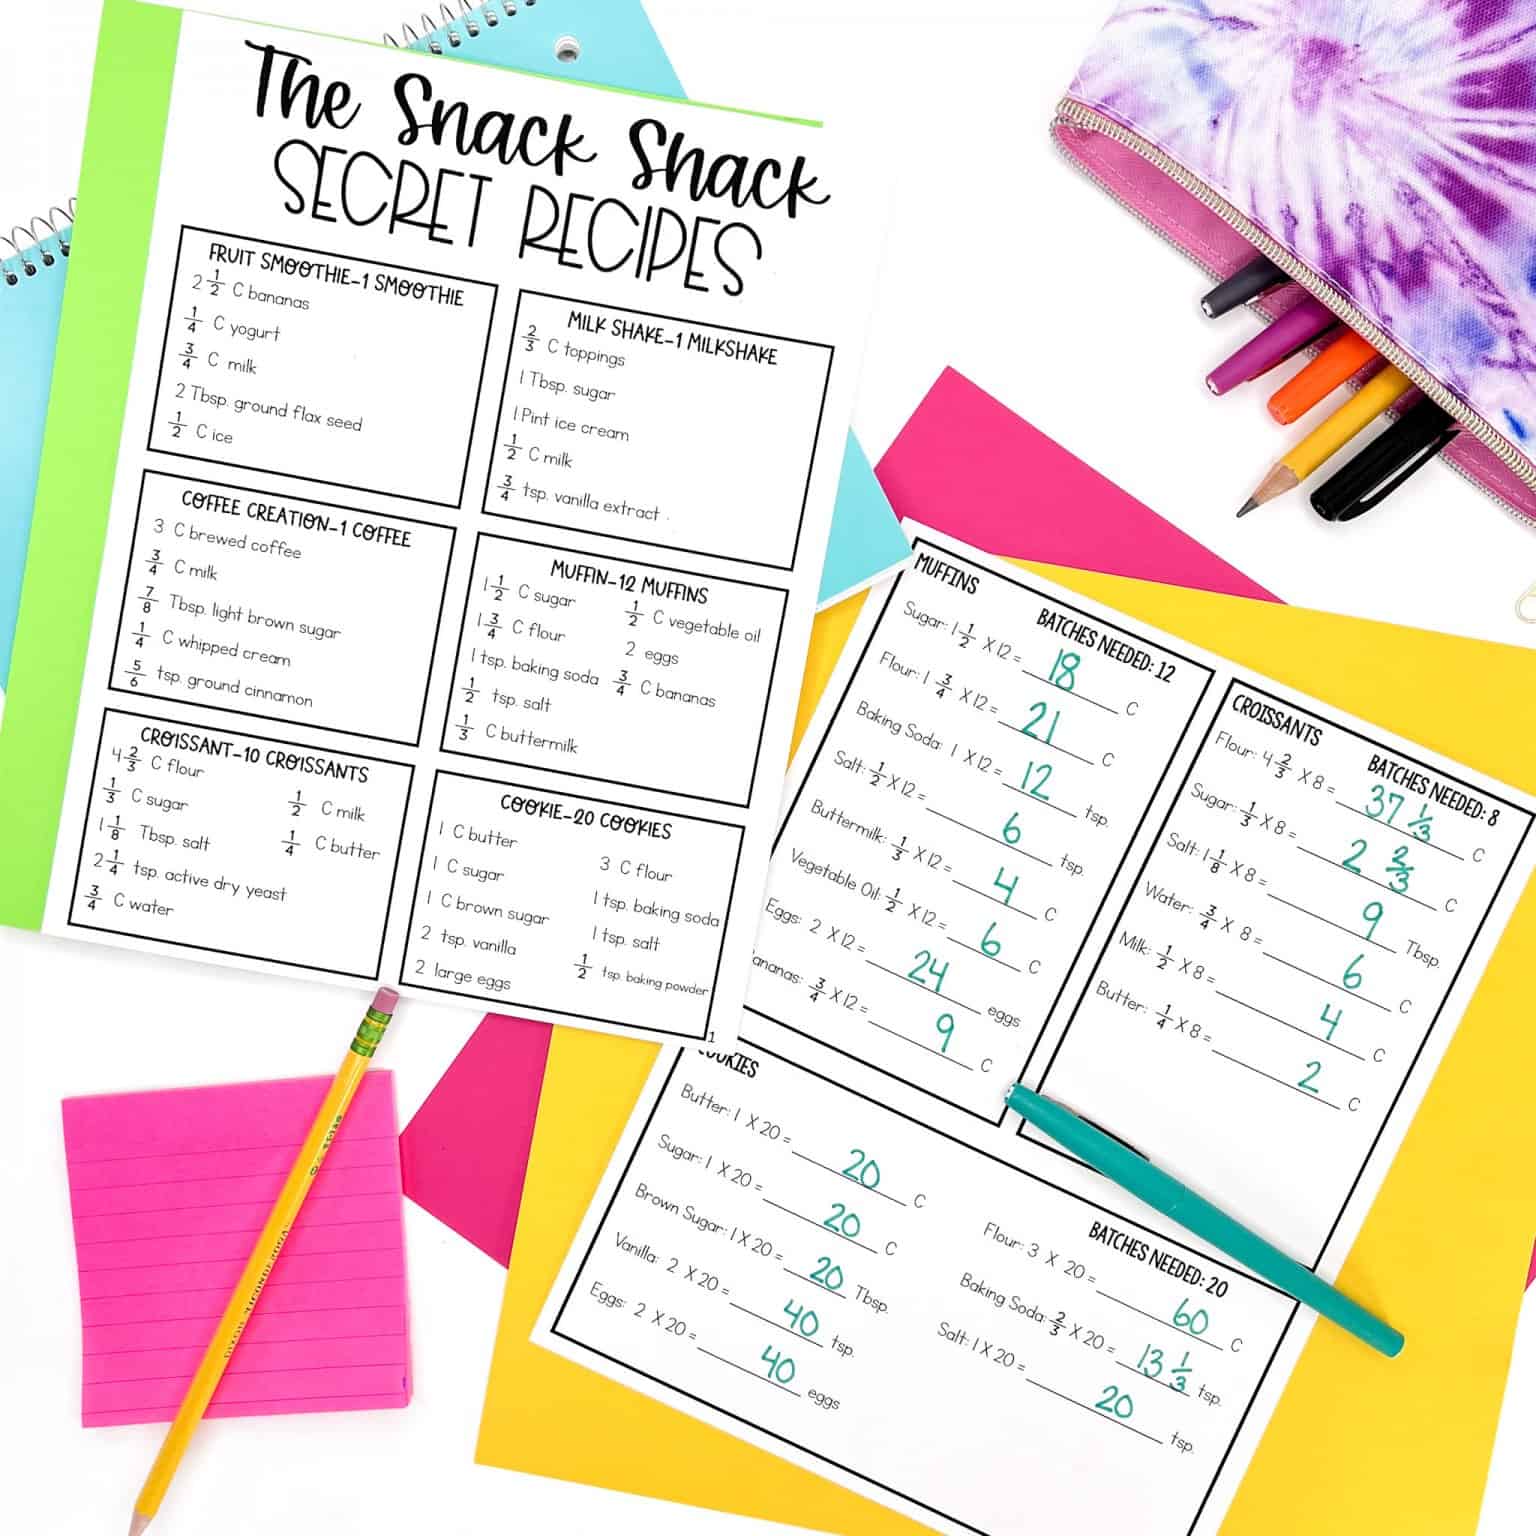 The Snack Shack
SECRET RECIPES
FRUIT SMOOTHIE-1 SMOOTHIE
2 1/2 C bananas
1/4 C yogurt
3/4 C milk
2 Tbsp. ground flax seed
1/2 C ice
MILK SHAKE-1 MILKSHAKE
2/3 C toppings
1 Tbsp. sugar
1 Pint ice cream
1/2 C milk
3/4 tsp. vanilla extract .
COFFEE CREATION-1 COFFEE
3 C brewed coffee
3/4 C milk
7/8 Tbsp. light brown sugar
1/4 C whipped cream
5/6 tsp. ground cinnamon
MUFFIN-12 MUFFINS
1 1/2 C sugar
1 3/4 C flour
1 tsp. baking soda
1/2 tsp. salt
1/3 C buttermilk
1/2 C vegetable oil
2 eggs
3/4 C bananas
CROISSANT-10 CROISSANTS
4 2/3 C flour
1/3 C sugar
1 1/8 Tbsp. salt
2 1/4 tsp. active dry yeast
3/4 C water
1/2 C milk
1/4 C butter
COOKIE-20 COOKIES
1 C butter
1 C sugar
1 C brown sugar
2 tsp. vanilla
2 large eggs
3 C flour
1 tsp. baking soda
1 tsp. salt
1/2 tsp. baking powder
1
MUFFINS
BATCHES NEEDED: 12
Sugar: 1 1/2 X 12 = 18 C
Flour: 1 3/4 X 12 = 21 C
Baking Soda: 1 X 12 = 12 tsp.
Salt: 1/2 X 12 = 6 tsp.
Buttermilk: 1/3 X 12 = 4 C
Vegetable Oil: 1/2 X 12 = 6 C
Eggs: 2 X 12 = 24 eggs
ananas: 3/4 X 12 = 9 C
CROISSANTS
BATCHES NEEDED: 8
Flour: 4 2/3 X 8 = 37 1/3 C
Sugar: 1/3 X 8 = 2 2/3 C
Salt: 1 1/8 X 8 = 9 Tbsp.
Water: 3/4 X 8 = 6 C
Milk: 1/2 X 8 = 4 C
Butter: 1/4 X 8 = 2 C
COOKIES
BATCHES NEEDED: 20
Butter: 1 X 20 = 20 C
Sugar: 1 X 20 = 20 C
Brown Sugar: 1 X 20 = 20 Tbsp.
Vanilla: 2 X 20 = 40 tsp.
Eggs: 2 X 20 = 40 eggs
Flour: 3 X 20 = 60 C
Baking Soda: 2/3 X 20 = 13 1/3 tsp.
Salt: 1 X 20 = 20 tsp.